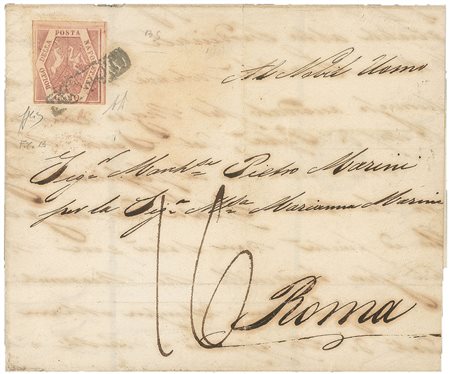 POSTA NAPOLETANA
BOLLO DELLA
Al Nobil Uomo
Sig.r March.se Pietro Marini
per la Sig.a M.sa Marianna Marini
16
Roma